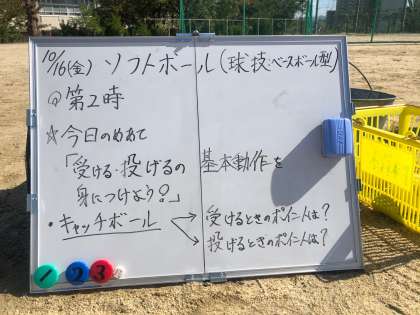 10/16(金) ソフトボール(球技:ベースボール型)
@ 第2時
☆今日のめあて
「受ける・投げるの 基本動作を
身につけよう!」
・キャッチボール → 受けるときのポイントは?
→ 投げるときのポイントは?
1 2 3